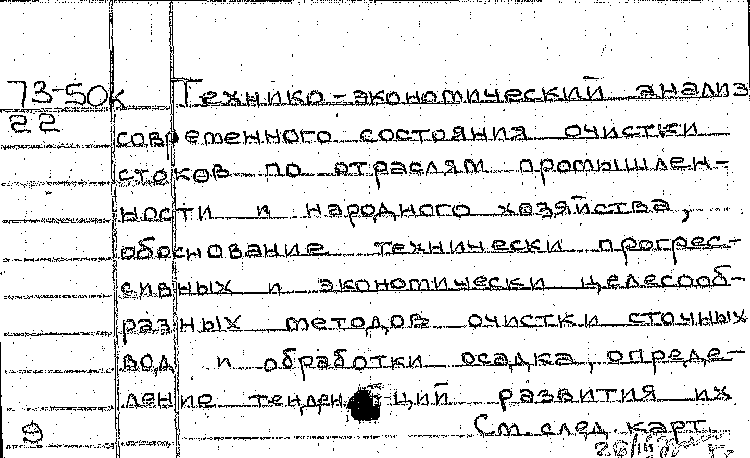 73-50к Технико-экономический анализ
22
современного состояния очистки
стоков по отраслям промышлен-
ности и народного хозяйства,
обоснование технически прогрес-
сивных и экономически целесооб-
разных методов очистки сточных
вод и обработки осадка, опреде-
ление тенденций развития их
9 См. след. карт.